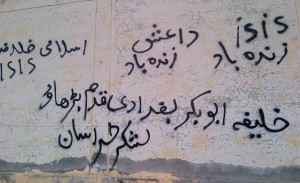 isis
زنده باد
داعش
زنده باد
اسلامی
ISIS
خلیفه ابوبکر بغدادی قدم بڑھاؤ
لشکر خراسان